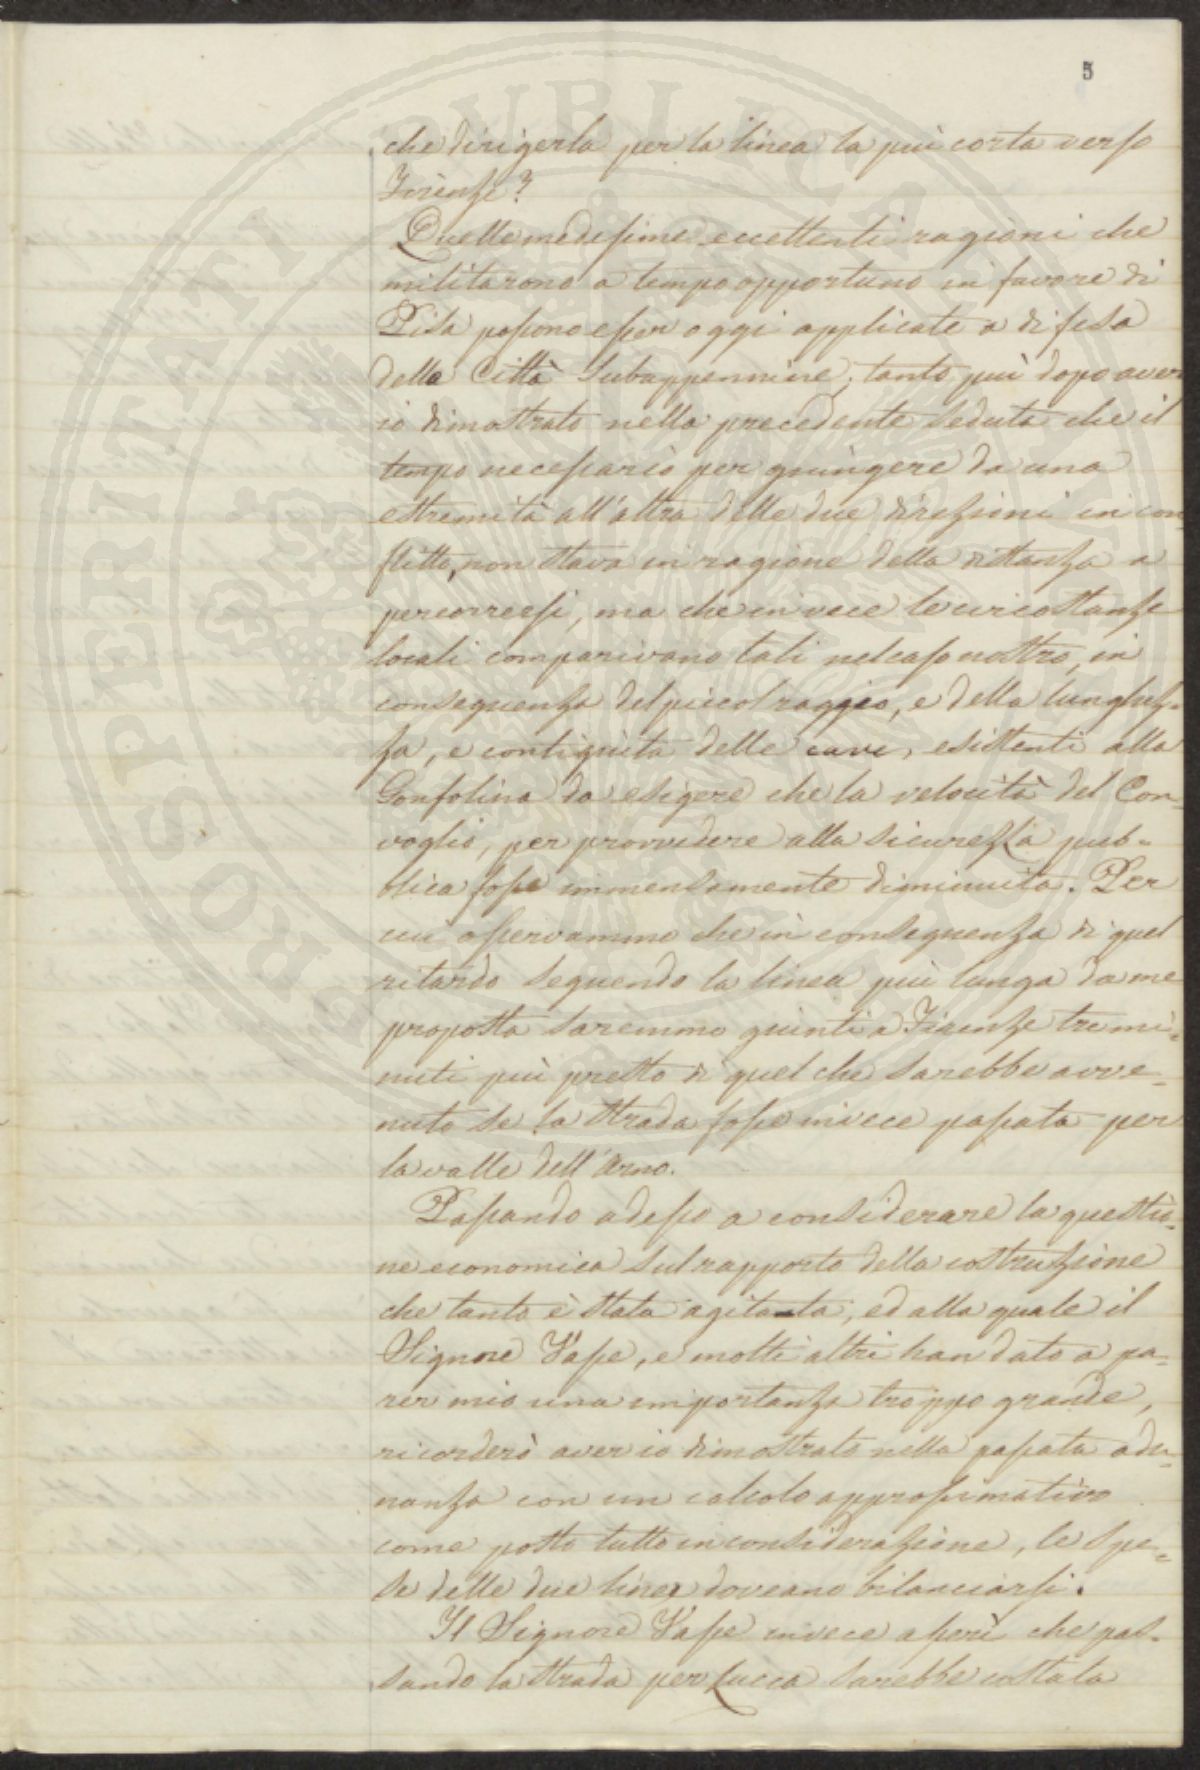 5
che dirigerla per la linea la più corta verso
Firenze?
Quelle medesime eccellenti ragioni che
militarono a tempo opportuno in favore di
Pisa possono esser oggi applicate a difesa
delle Città Subappennine; tanto più dopo aver
io dimostrato nella precedente seduta che il
tempo necessario per giungere da una
estremità all'altra delle due direzioni in con-
flitto, non stava in ragione della distanza a
percorresi, ma che invece le circostanze
locali comparivano tali nel caso nostro, in
conseguenza del piccol raggio, e della lunghez-
za, e contiguità delle curve, esistenti alla
Gonfolina da esigere che la velocità del Con-
voglio, per provvedere alla sicurezza pub-
blica fosse immensamente diminuita. Per
cui osservammo che in conseguenza di quel
ritardo seguendo la linea più lunga da me
proposta saremmo giunti a Firenze tre mi-
nuti più presto di quel che sarebbe avve-
nuto se la strada fosse invece passata per
la valle dell'Arno.
Passando adesso a considerare la questio-
ne economica sul rapporto della costruzione
che tanto è stata agitata, ed alla quale il
Signore Vasse, e molti altri han dato a pa-
rer mio una importanza troppo grande,
ricorderò aver io dimostrato nella passata adu-
nanza con un calcolo approssimativo
come posto tutto in considerazione, le spe-
se delle due linee doveano bilanciarsi.
Il Signore Vasse invece asserì che pas-
sando la strada per Lucca sarebbe costata
PROSPERITATI PUBLICAE